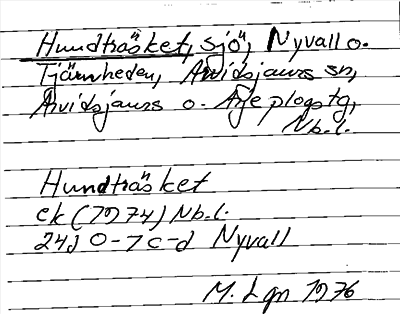 Hundträsket, sjö, Nyvall o.
Tjärnheden, Arvidsjaurs sn,
Arvidsjaurs o. Arjeplogs tg,
Nb.l.
Hundträsket
ek (1974) Nb.l.
24J 0-7 c-d Nyvall
M. Lgn 1976